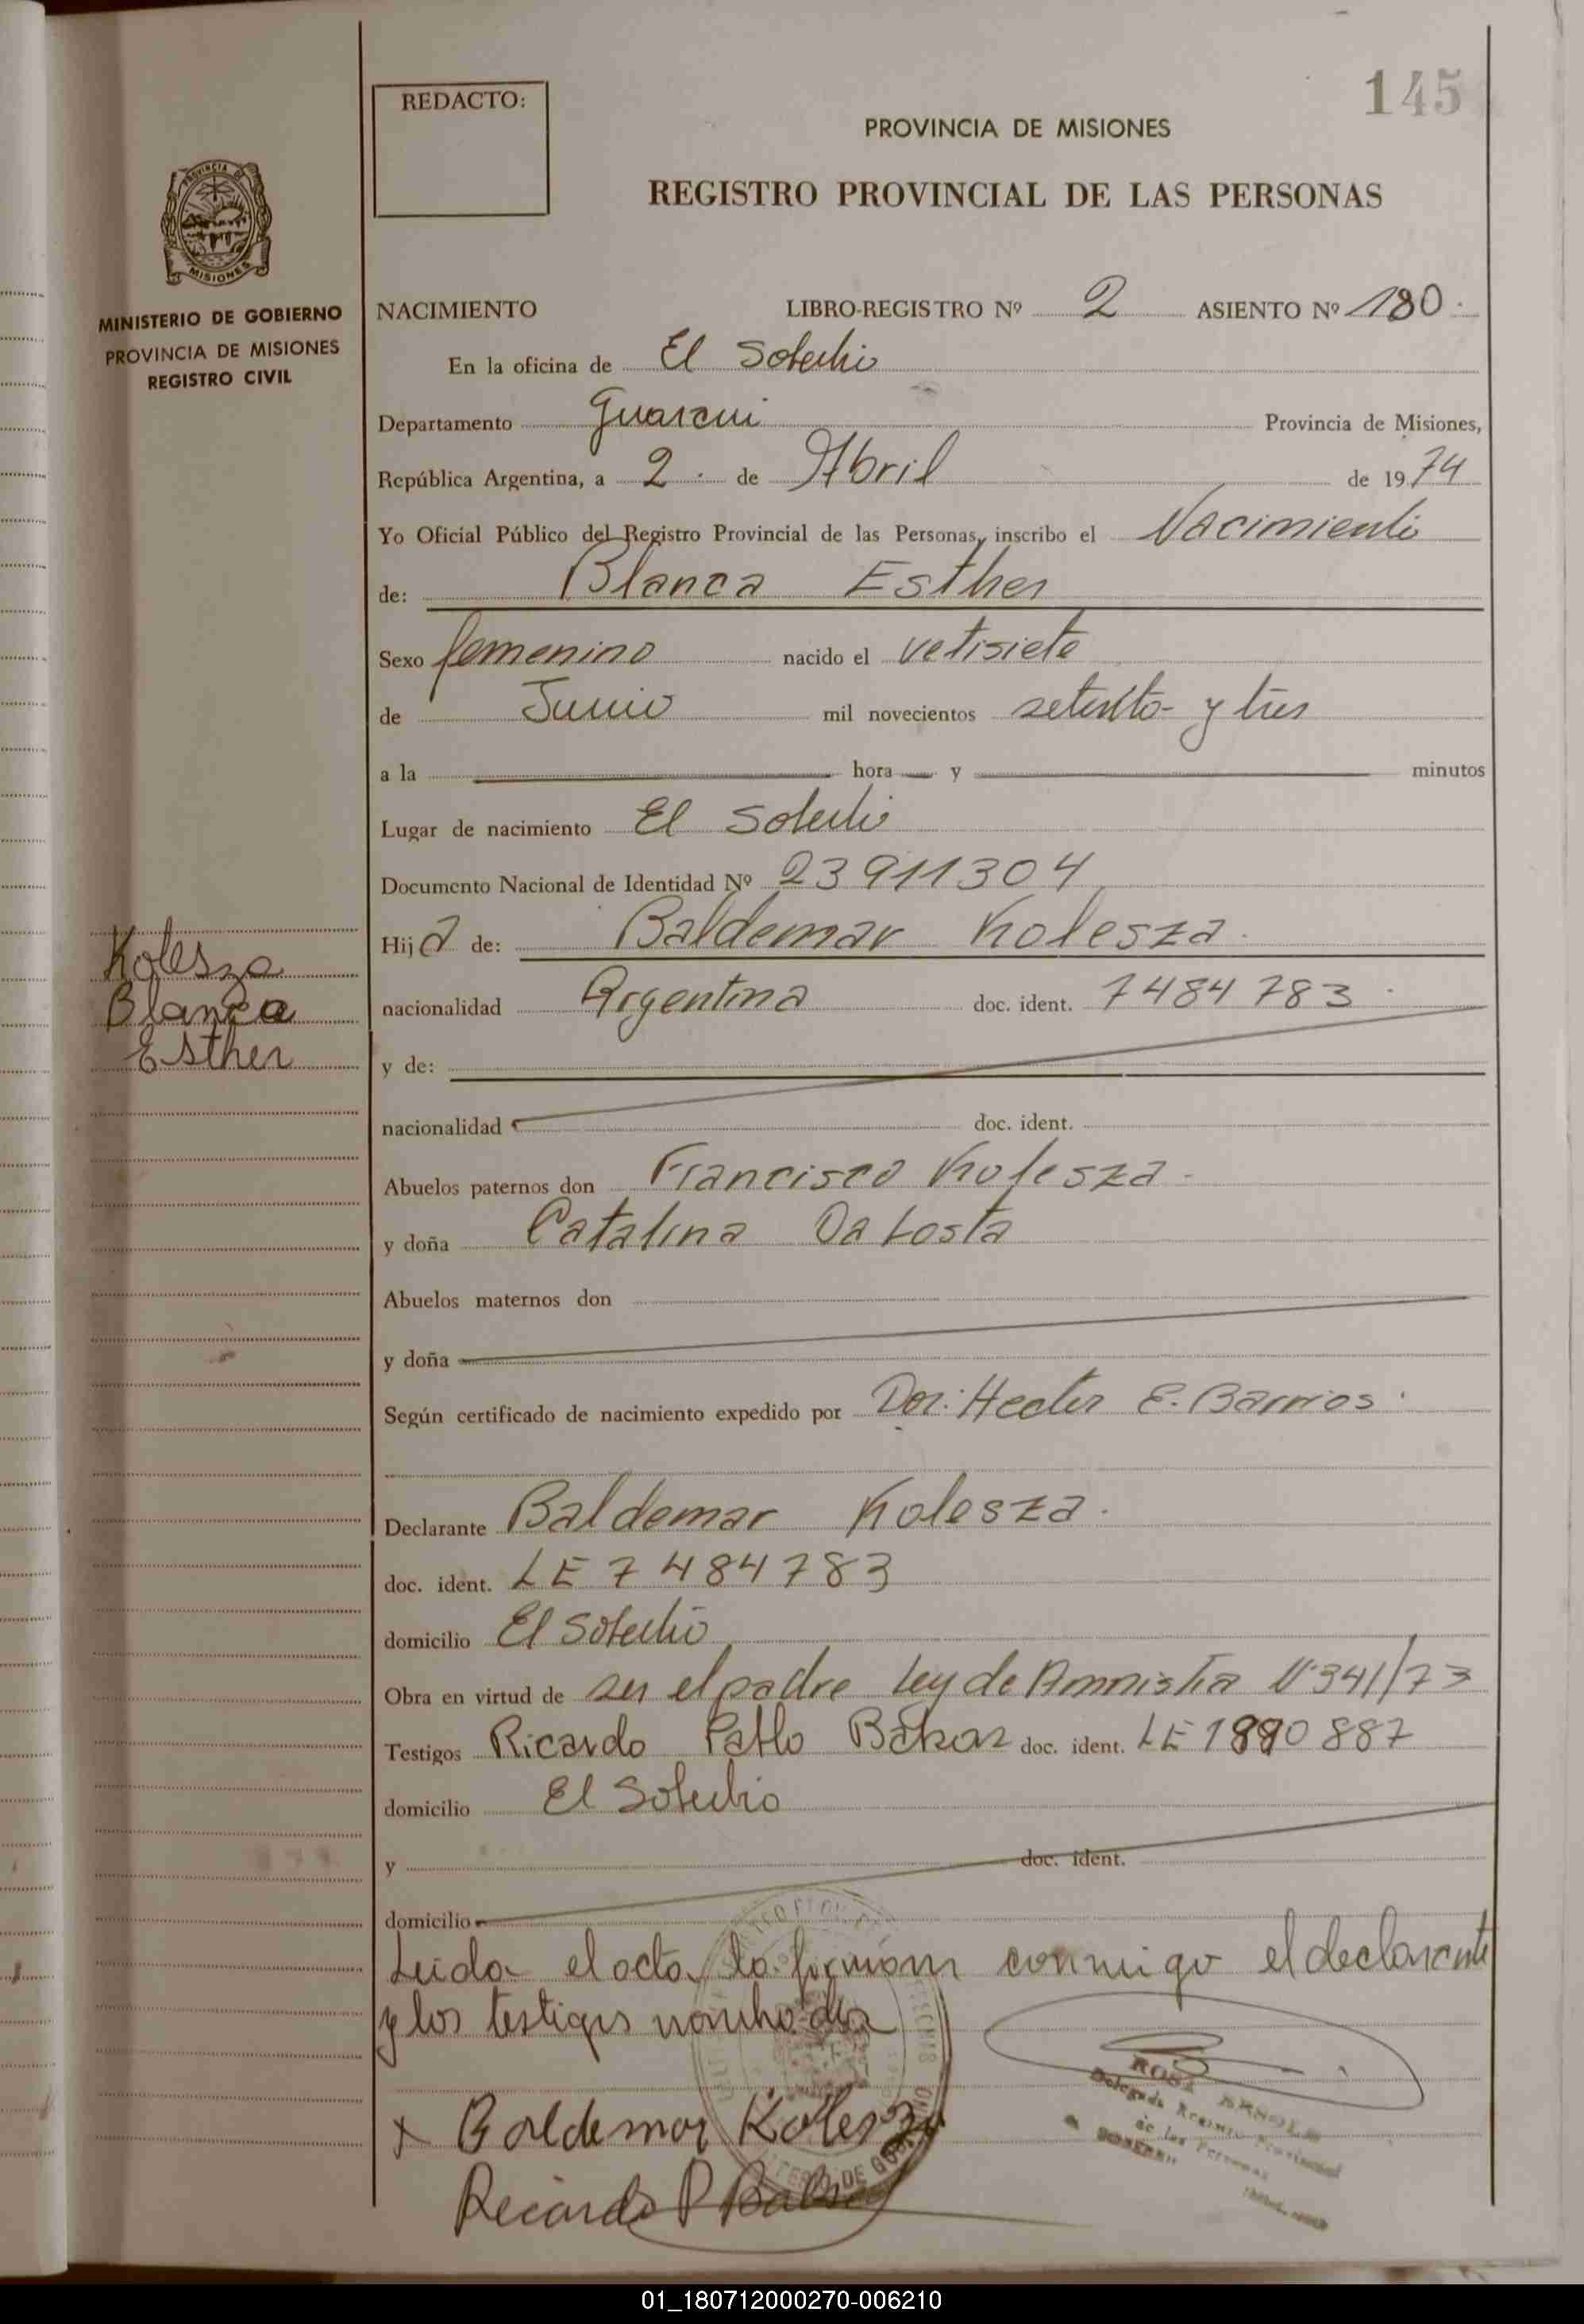 145
REDACTO:
PROVINCIA DE MISIONES
REGISTRO PROVINCIAL DE LAS PERSONAS
PROVINCIA DE
MISIONES
MINISTERIO DE GOBIERNO
PROVINCIA DE MISIONES
REGISTRO CIVIL
NACIMIENTO LIBRO-REGISTRO Nº 2 ASIENTO Nº 180
En la oficina de El Soberbio
Departamento Guarani Provincia de Misiones,
República Argentina, a 2 de Abril de 1974
Yo Oficial Público del Registro Provincial de las Personas, inscribo el Nacimiento
de: Blanca Esther
Sexo femenino nacido el vetisiete
de Junio mil novecientos setenta y tres
a la hora y minutos
Lugar de nacimiento El Soberbio
Documento Nacional de Identidad Nº 23911304
Hija de: Baldemar Kolesza
nacionalidad Argentina doc. ident. 7484783
y de:
nacionalidad doc. ident.
Kolesza
Blanca
Esther
Abuelos paternos don Francisco Kolesza
y doña Catalina Da Costa
Abuelos maternos don
y doña
Según certificado de nacimiento expedido por Dor: Hector E. Barrios
Declarante Baldemar Kolesza
doc. ident. LE 7484783
domicilio El Soberbio
Obra en virtud de ser el padre Ley de Amnistia Nº 341/73
Testigos Ricardo Pablo doc. ident. LE 1890887
domicilio El Soberbio
y doc. ident.
domicilio
Leida el acta, la firman conmigo el declarante
y los testigos
x Baldemar Kolesza
Ricardo P
ROSA
Delegada Registro Provincial
de las Personas
01_180712000270-006210